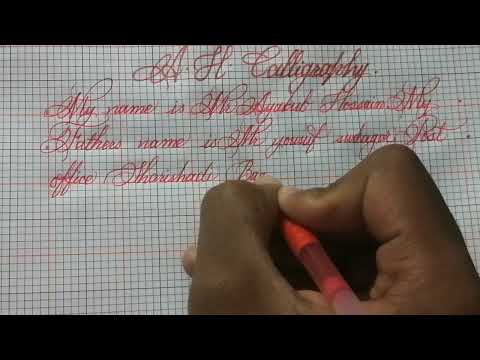 A. H Calligraphy.
My name is Mh Ayakub Hossain My
Fathers name is Mh yousuf sudagor. Post
office Thareshadi Ba